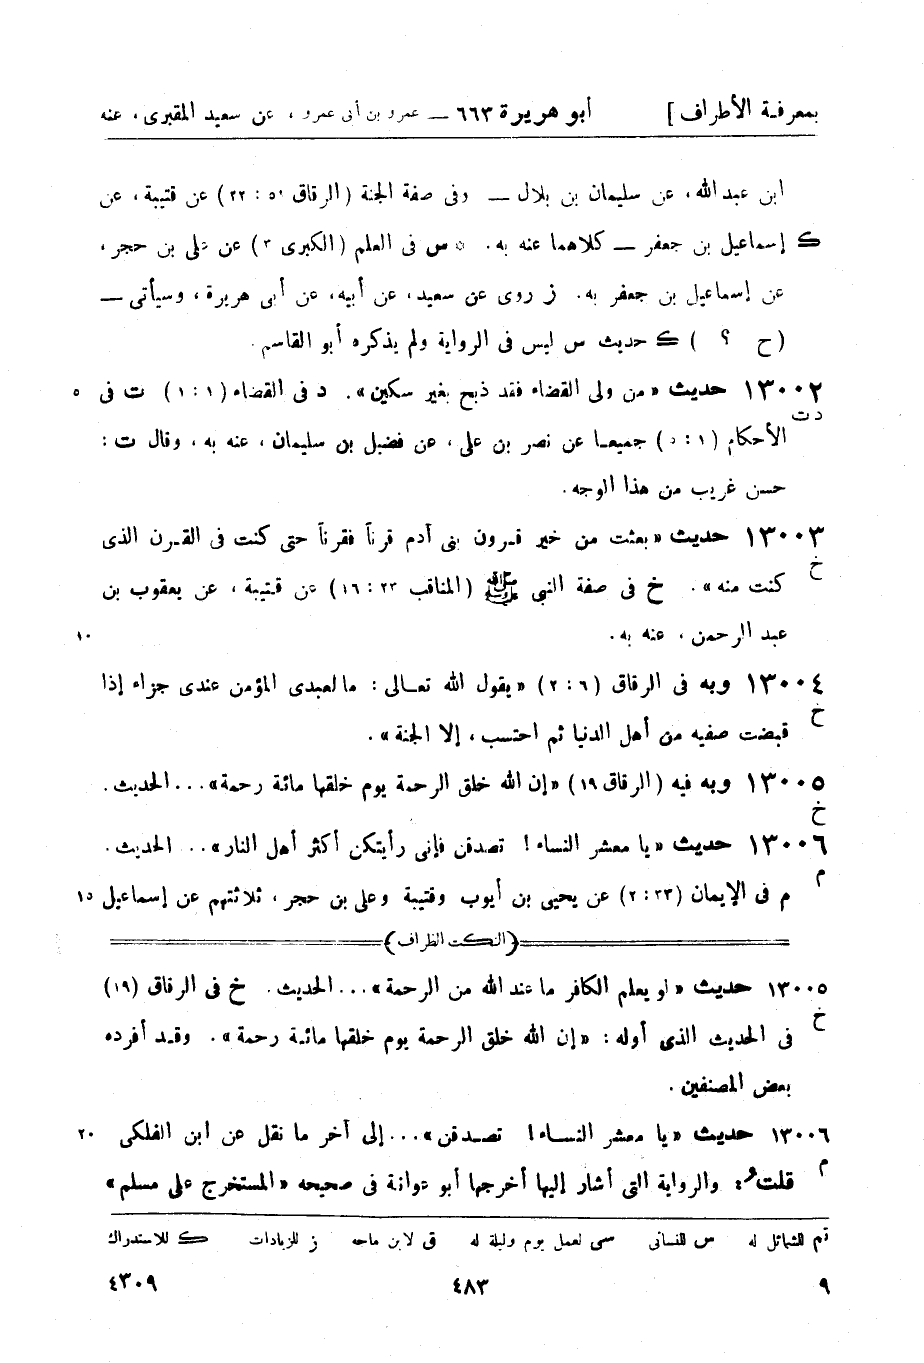 بمعرفة الأطراف] أبو هريرة ٦٦٣ ــ عمرو بن أبى عمرو، عن سعيد المقبرى، عنه
ابن عبد الله، عن سليمان بن بلال ــ وفى صفة الجنة (الرقاق ٥١ : ٢٢) عن قتيبة، عن
ك إسماعيل بن جعفر ــ كلاهما عنه به. * س فى العلم (الكبرى ٣) عن على بن حجر،
عن إسماعيل بن جعفر به. ز روى عن سعيد، عن أبيه، عن أبى هريرة، وسيأتى ــ
(ح ؟ ) ك حديث س ليس فى الرواية ولم يذكره أبو القاسم.
١٣٠٠٢ حديث «من ولى القضاء فقد ذبح بغير سكين». د فى القضاء (١ : ١) ت فى ٥
د ت
الأحكام (١ : ٥) جميعا عن نصر بن على، عن فضيل بن سليمان، عنه به، وقال ت :
حسن غريب من هذا الوجه.
١٣٠٠٣ حديث «بعثت من خير قرون بنى آدم قرناً فقرناً حتى كنت فى القرن الذى
خ
كنت منه». خ فى صفة النبى ﷺ (المناقب ٢٣ : ١٦) عن قتيبة، عن يعقوب بن
عبد الرحمن، عنه به. ١٠
١٣٠٠٤ وبه فى الرقاق (٦ : ٢) «يقول الله تعالى : ما لعبدى المؤمن عندى جزاء إذا
خ
قبضت صفيه من أهل الدنيا ثم احتسب، إلا الجنة».
١٣٠٠٥ وبه فيه (الرقاق ١٩) «إن الله خلق الرحمة يوم خلقها مائة رحمة»... الحديث.
خ
١٣٠٠٦ حديث «يا معشر النساء! تصدقن فإنى رأيتكن أكثر أهل النار»... الحديث.
م
م فى الإيمان (٣٣ : ٢) عن يحيى بن أيوب وقتيبة وعلى بن حجر، ثلاثتهم عن إسماعيل ١٥
(النكت الظراف)
١٣٠٠٥ حديث «لو يعلم الكافر ما عند الله من الرحمة»... الحديث. خ فى الرقاق (١٩)
خ
فى الحديث الذى أوله : «إن الله خلق الرحمة يوم خلقها مائة رحمة». وقد أفرده
بعض المصنفين.
١٣٠٠٦ حديث «يا معشر النساء! تصدقن»... إلى آخر ما نقل عن ابن الفلكى ٢٠
م
قلت: والرواية التى أشار إليها أخرجها أبو عوانة فى صحيحه «المستخرج على مسلم»
تم للشمائل له س للنسائى سى لعمل يوم وليلة له ق لابن ماجه ز للزيادات ك للاستدراك
٩ ٤٨٣ ٤٣٠٩